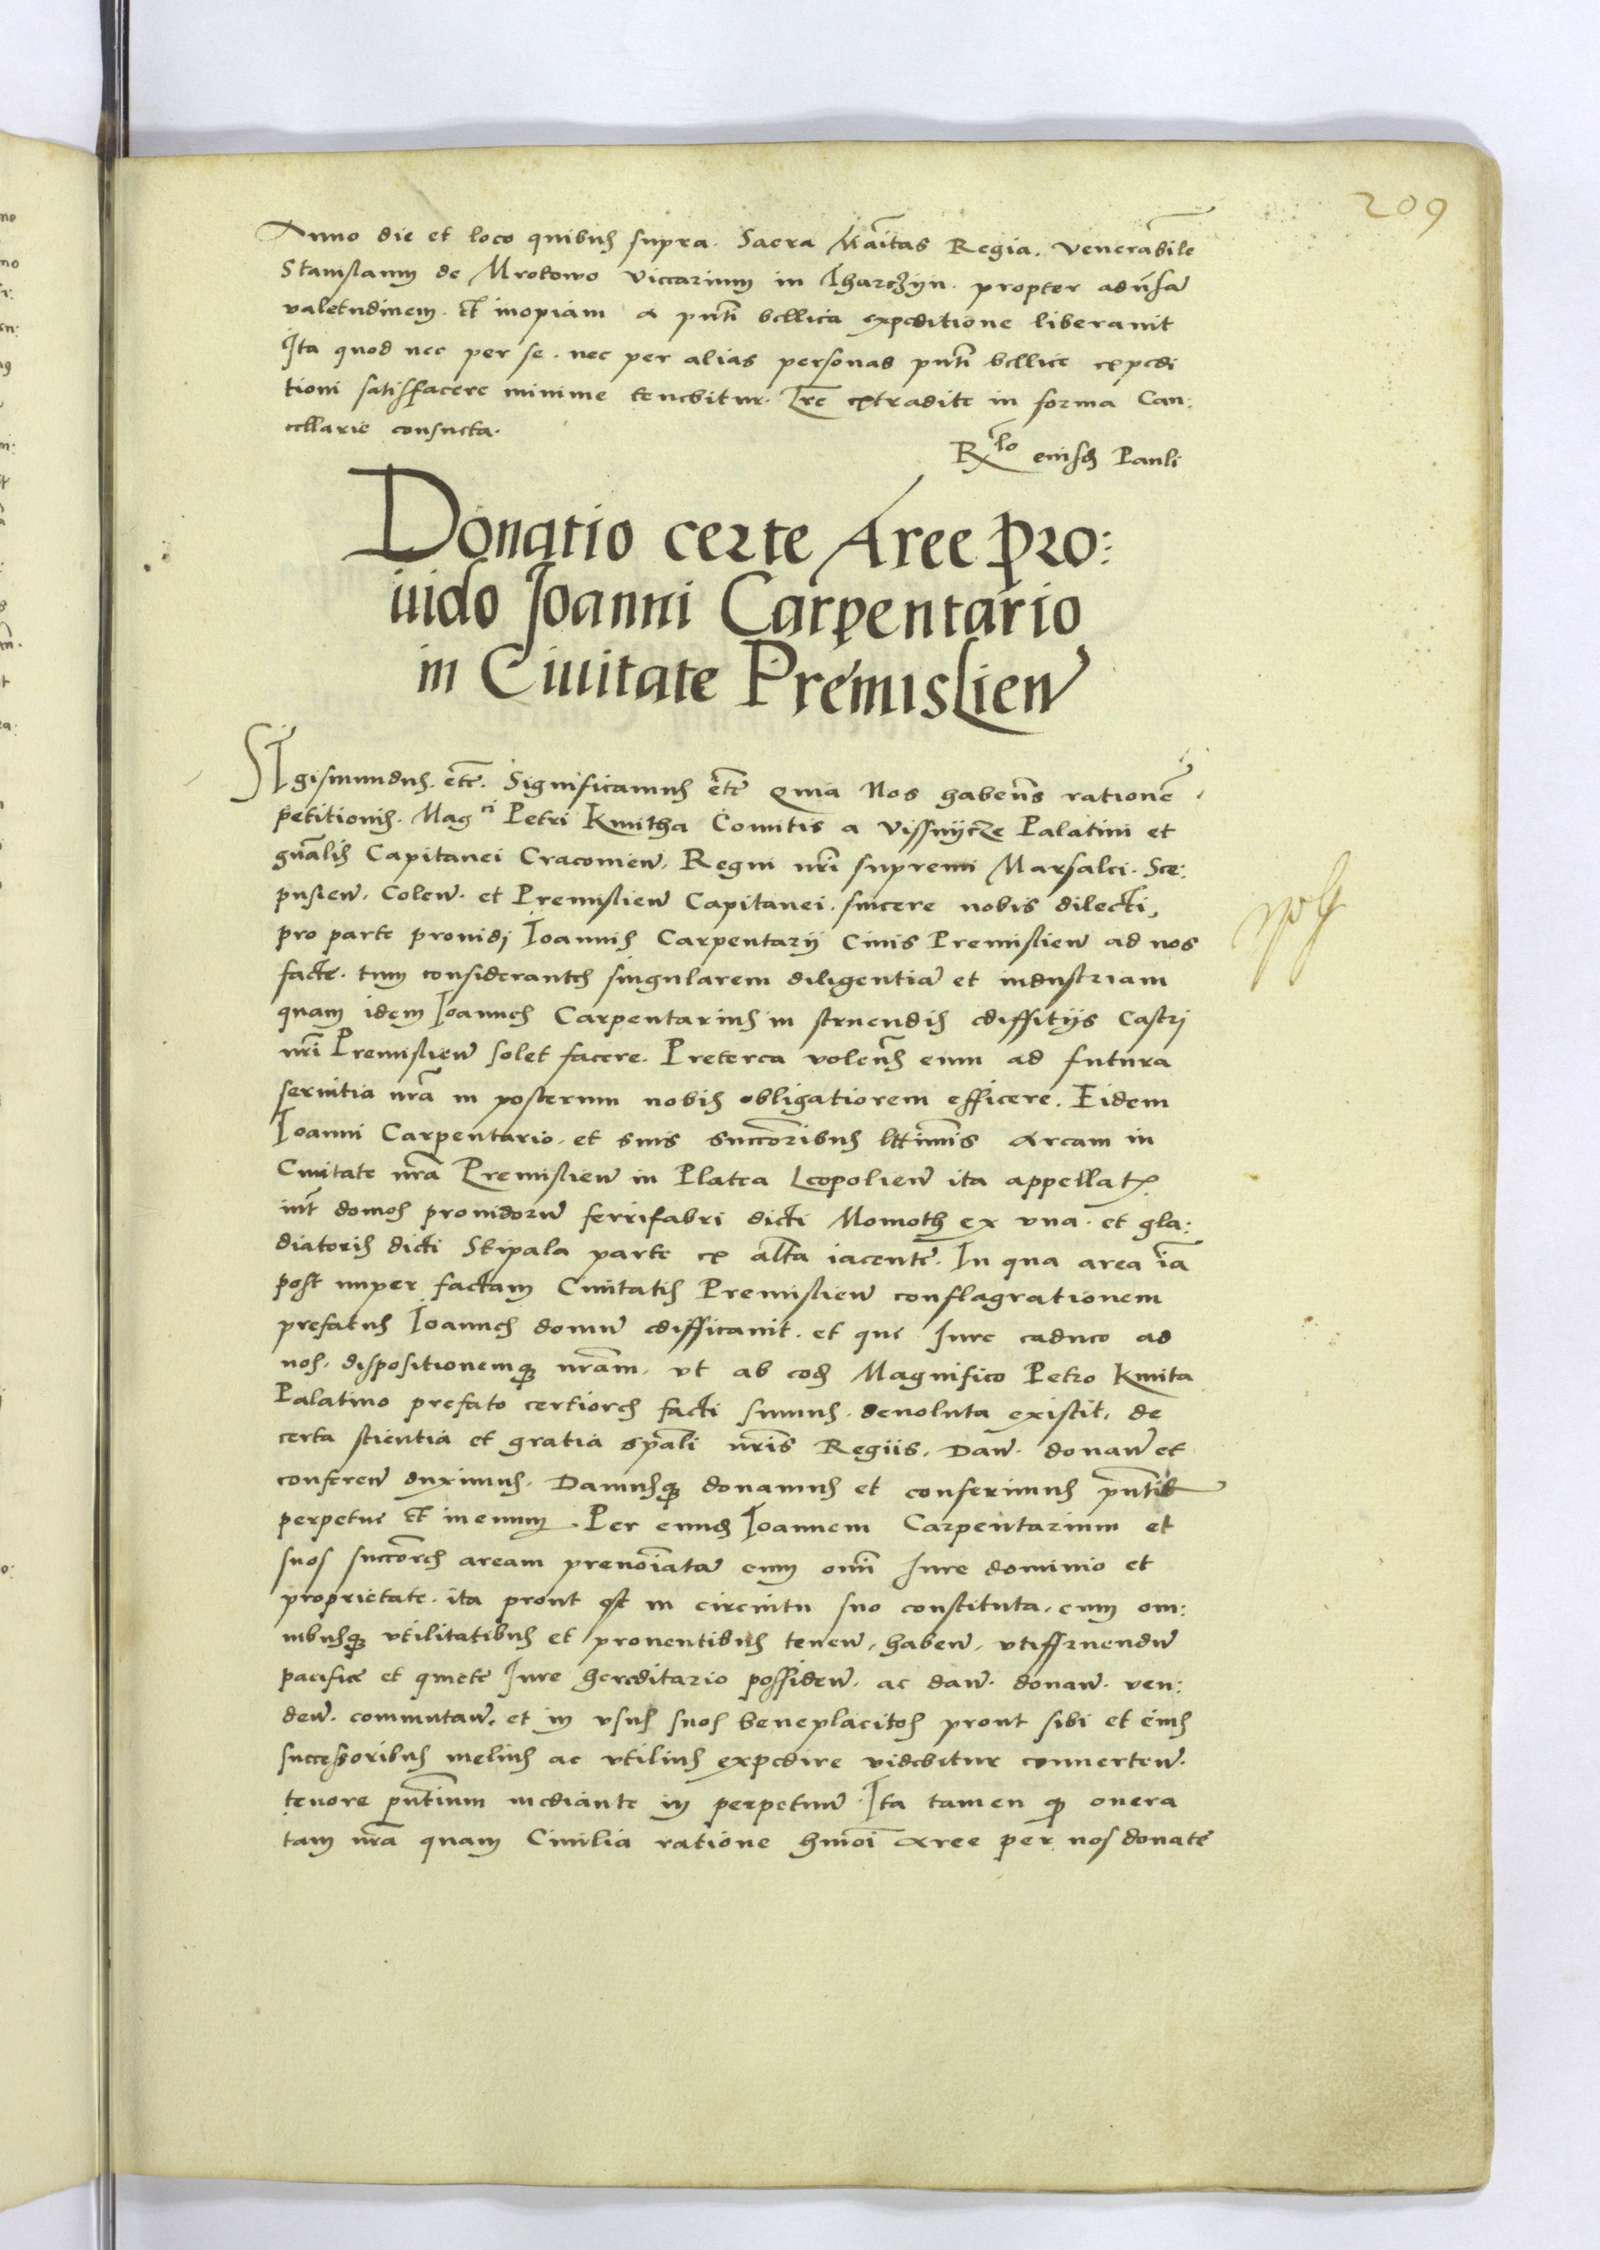 209
Anno die et loco quibus supra. Sacra Maītas Regia. venerabile
Stanislaum de Mrokowo viccarium in Tharchijn. propter adūsā
valetudinem. Et inopiam a pn̄ti bellica expeditione liberauit
Ita quod nec per se. nec per alias personas pn̄ti bellice expedi
tioni satisfacere minime tenebitur. Lr̄e extradite in forma Can:
cellarie consueta.
Rlo eiusd Pauli
Donatio certe Aree Pro:
uido Ioanni Carpentario
in Ciuitate Premislien̄
Sigismundus. etc̄. Significamus etc̄ Quia Nos haben̄s rationē
petitionis. Magci Petri Kmitha Comitis a Vissnycze Palatini et
gn̄alis Capitanei Cracouien̄. Regni nr̄i supremi Marsalci. Sce:
pusien̄. Colen̄. et Premislien̄ Capitanei. sincere nobis dilecti,
pro parte prouidi Ioannis Carpentarij Ciuis Premislien̄ ad nos
facte. tum considerantes singularem diligentiā et industriam
quam idem Ioannes Carpentarius in struendis ediffitijs Castri
nr̄i Premislien̄ solet facere. Preterea volen̄s eum ad futura
seruitia nr̄a in posterum nobis obligatiorem efficere. Eidem
Ioanni Carpentario. et suis succōribus lt̄imis Aream in
Ciuitate nr̄a Premislien̄ in Platea Leopolien̄ ita appellat
int̄ domos prouidorū ferrifabri dicti Momoth ex vna. et gla:
diatoris dicti Skipala parte ex alt̄a iacentē. In qua area iā
post nuper factam Ciuitatis Premislien̄ conflagrationem
prefatus Ioannes domū edifficauit. et que Iure caduco ad
nos. dispositionemq nr̄am. vt ab eod Magnifico Petro Kmita
Palatino prefato certiores facti sumus. deuoluta existit, de
certa scientia et gratia sp̄ali nr̄is Regiis. Dan̄. donan̄ et
conferen̄ duximus. Damusq donamus et conferimus pn̄tib
perpetue et in euum. Per eund Ioannem Carpentarium et
suos succōres aream prenoīatā cum om̄i Iure dominio et
proprietate. ita prout est in circuitu suo constituta, cum om:
nibusq vtilitatibus et prouentibus tenen̄. haben̄. vtiffruendū
pacifice et quiete Iure hereditario possiden̄. ac dan̄. donan̄. ven:
den̄. commutan̄. et in vsus suos beneplacitos prout sibi et eius
successoribus melius ac vtilius expedire videbitur conuerten̄.
tenore pn̄tium mediante in perpetuū. Ita tamen q onera
tam nr̄a quam Ciuilia ratione hmōi Aree per nos donate